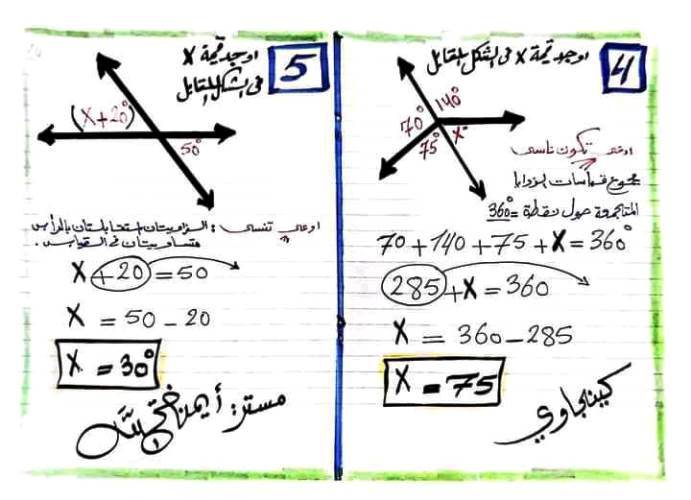 4
اوجد قيمة x فى الشكل المقابل
140°
70°
75°
x°
اوعى تكون ناسى
مجموع قياسات الزوايا
المتجمعة حول نقطة = 360°
70 + 140 + 75 + x = 360°
285 + x = 360
x = 360 - 285
x = 75
كينجاوي
5
اوجد قيمة x
فى الشكل المقابل
(x + 20°)
50°
اوعى تنسى : الزاويتان المتقابلتان بالرأس
متساويتان فى القياس .
x + 20 = 50
x = 50 - 20
x = 30°
مستر: أيمن فتحي